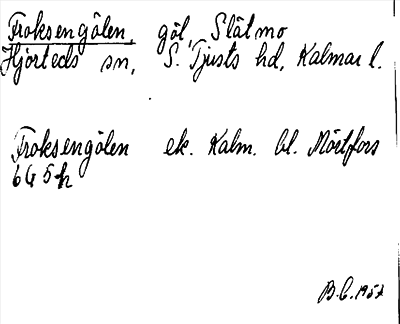 Froksengölen, göl, Slätmo
Hjorteds sn, S. Tjusts hd, Kalmar l.
Froksengölen ek. Kalm. bl. Mörtfors
6G5h
B.C. 1957